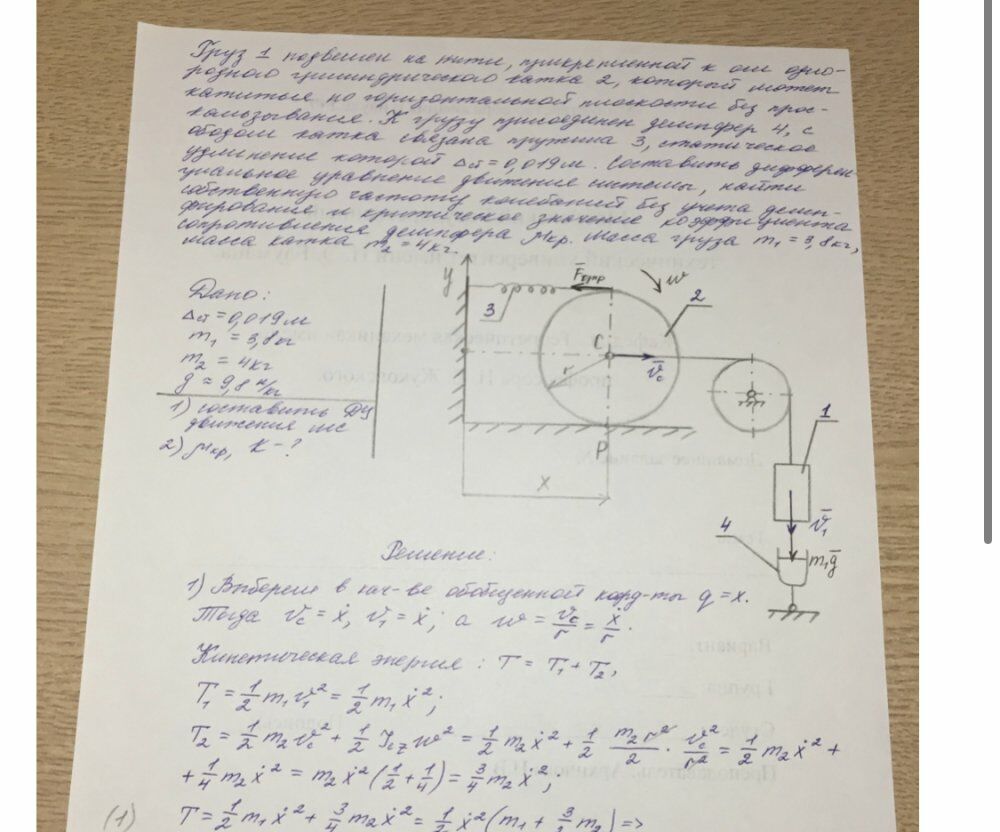 Груз 1 подвешен на нити, прикрепленной к оси одно-
родного цилиндрического катка 2, который может
катиться по горизонтальной плоскости без прос-
кальзывания. К грузу присоединен демпфер 4, с
ободом катка связана пружина 3, статическое
удлинение которой Δст = 0,019 м. Составить дифферен-
циальное уравнение движения системы, найти
собственную частоту колебаний без учета демп-
фирования и критическое значение коэффициента
сопротивления демпфера μкр. Масса груза m₁ = 3,8 кг,
масса катка m₂ = 4 кг.
Дано:
Δст = 0,019 м
m₁ = 3,8 кг
m₂ = 4 кг
g ≈ 9,8 н/кг
1) составить ДУ
движения
2) μкр, K - ?
y
3
F̄упр
ω
2
C
r
v̄c
P
x
1
v̄₁
4
m₁ḡ
Жуковского.
Вариант:
Группа:
Решение:
1) Выберем в кач-ве обобщенной коорд-ты q = x.
Тогда vc = ẋ, v₁ = ẋ; а ω = vc/r = ẋ/r.
Кинетическая энергия: T = T₁ + T₂,
T₁ = 1/2 m₁v₁² = 1/2 m₁ẋ²;
T₂ = 1/2 m₂vc² + 1/2 Jcz ω² = 1/2 m₂ẋ² + 1/2 · m₂r²/2 · vc²/r² = 1/2 m₂ẋ² +
+ 1/4 m₂ẋ² = m₂ẋ² (1/2 + 1/4) = 3/4 m₂ẋ²;
(1) T = 1/2 m₁ẋ² + 3/4 m₂ẋ² = 1/2 ẋ² (m₁ + 3/2 m₂) =>